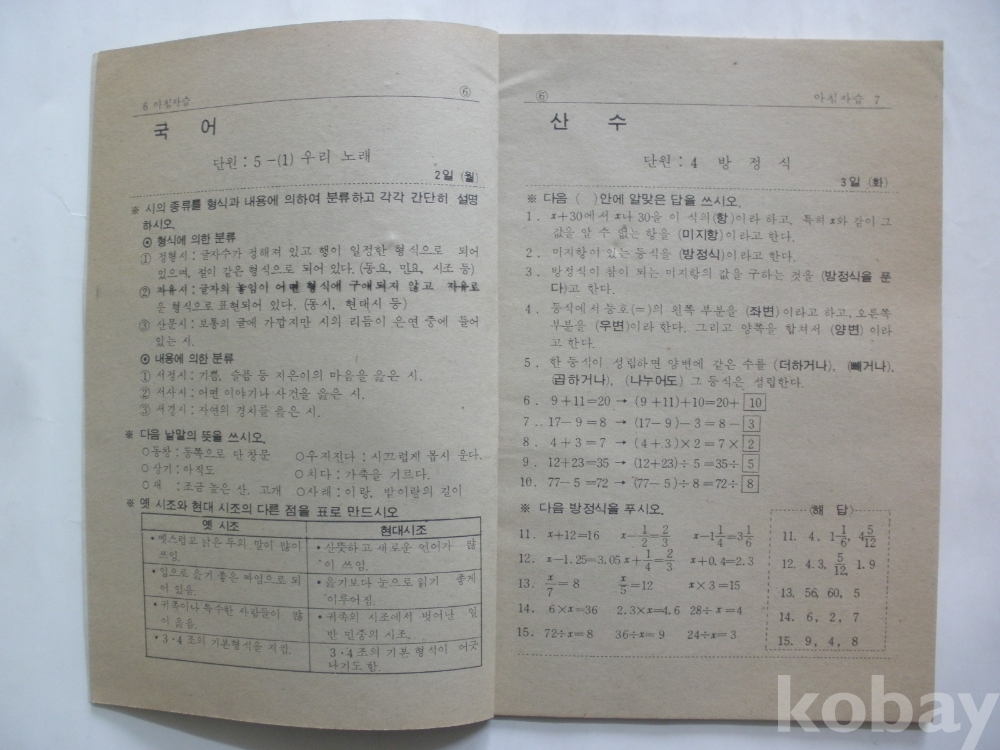 6 아침자습 ⑥
국 어
단원 : 5 -(1) 우리 노래
2일 (월)
※ 시의 종류를 형식과 내용에 의하여 분류하고 각각 간단히 설명
하시오.
◉ 형식에 의한 분류
① 정형시 : 글자수가 정해져 있고 행이 일정한 형식으로 되어
있으며, 절이 같은 형식으로 되어 있다. (동요, 민요, 시조 등)
② 자유시 : 글자의 놓임이 어떤 형식에 구애되지 않고 자유로
운 형식으로 표현되어 있다. (동시, 현대시 등)
③ 산문시 : 보통의 글에 가깝지만 시의 리듬이 은연 중에 들어
있는 시.
◉ 내용에 의한 분류
① 서정시 : 기쁨, 슬픔 등 지은이의 마음을 읊은 시.
② 서사시 : 어떤 이야기나 사건을 읊은 시.
③ 서경시 : 자연의 경치를 읊은 시.
※ 다음 낱말의 뜻을 쓰시오.
○동창 : 동쪽으로 단 창문 ○우지진다 : 시끄럽게 몹시 운다.
○상기 : 아직도 ○치다 : 가축을 기르다.
○재 : 조금 높은 산. 고개 ○사래 : 이랑, 밭이랑의 길이
※ 옛 시조와 현대 시조의 다른 점을 표로 만드시오
옛 시조 현대시조
• 옛스럽고 낡은 투의 말이 많이
쓰임.
• 산뜻하고 새로운 언어가 많
이 쓰임.
• 입으로 읊기 좋은 짜임으로 되
어 있음.
• 읊기보다 눈으로 읽기 좋게
이루어짐.
• 귀족이나 특수한 사람들이 많
이 읊음.
• 귀족의 시조에서 벗어난 일
반 민중의 시조.
• 3·4 조의 기본형식을 지킴.
3·4 조의 기본 형식이 어긋
나기도 함.
⑥ 아침자습 7
산 수
단원 : 4 방 정 식
3일 (화)
※ 다음 ( )안에 알맞은 답을 쓰시오.
1. x+30에서 x나 30을 이 식의(항)이라 하고, 특히 x와 같이 그
값을 알 수 없는 항을 (미지항)이라고 한다.
2. 미지항이 있는 등식을 (방정식)이라고 한다.
3. 방정식이 참이 되는 미지항의 값을 구하는 것을 (방정식을 푼
다)고 한다.
4. 등식에서 등호(=)의 왼쪽 부분을 (좌변)이라고 하고, 오른쪽
부분을 (우변)이라 한다. 그리고 양쪽을 합쳐서 (양변)이라
고 한다.
5. 한 등식이 성립하면 양변에 같은 수를 (더하거나), (빼거나),
(곱하거나), (나누어도) 그 등식은 성립한다.
6. 9+11=20 → (9+11)+10=20+ 10
7. 17-9=8 → (17-9)-3=8- 3
8. 4+3=7 → (4+3)×2=7× 2
9. 12+23=35 → (12+23)÷5=35÷ 5
10. 77-5=72 → (77-5)÷8=72÷ 8
※ 다음 방정식을 푸시오.
11. x+12=16 x-1/2=2/3 x-1 1/4=3 1/6
12. x-1.25=3.05 x+1/4=2/3 x+0.4=2.3
13. x/7=8 x/5=12 x×3=15
14. 6×x=36 2.3×x=4.6 28÷x=4
15. 72÷x=8 36÷x=9 24÷x=3
〈해 답〉
11. 4, 1 1/6, 4 5/12
12. 4.3, 5/12, 1.9
13. 56, 60, 5
14. 6, 2, 7
15. 9, 4, 8
kobay